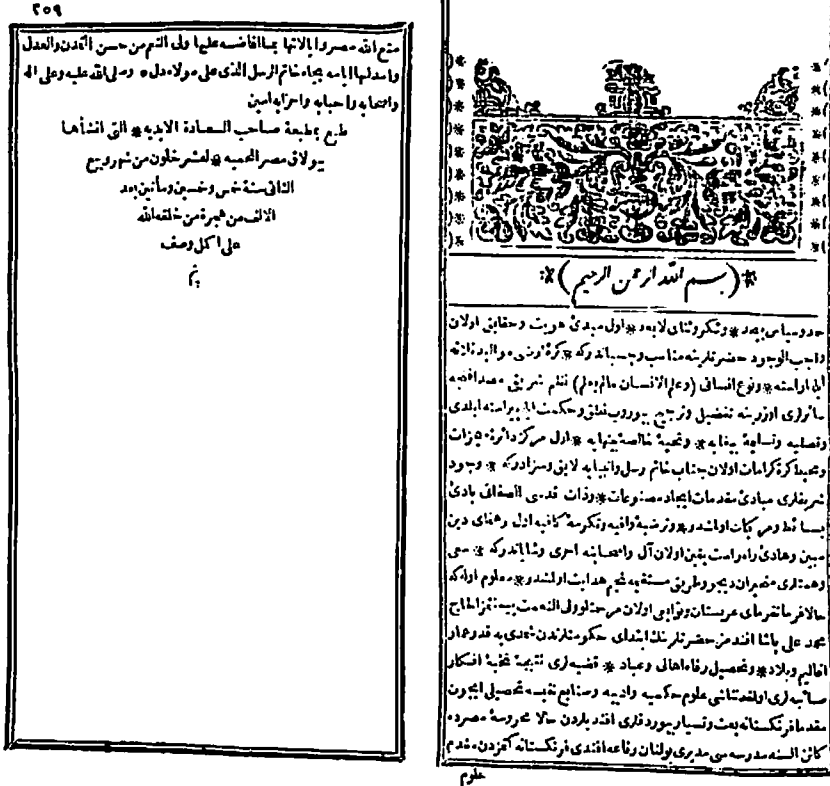 ٢٥٩
متع الله مصر وايالاتها بما افاضه عليها ولى النعم من حسن التمدن والعدل
واسدلها ايامه بجاه خاتم الرسل الذى على مولاه دل وصلى الله عليه وعلى اله
واصحابه واحبابه واحزابه امين
طبع بمطبعة صاحب السعادة الابديه * التى انشأها
ببولاق مصر المحميه * لعشر خلون من شهر ربيع
الثانى سنة خمس وخمسين ومأتين بعد
الالف من هجرة من خلقه الله
على اكمل وصف
تم
*(بسم الله الرحمن الرحيم)*
حمد وسپاس بيحد * وشكر وثناى لايعد * اول مبدئ هويت وحقايق اولان
واجب الوجود حضرتلرينه مناسب وچسباندركه * كرۀ ارضى
ونوع انسانى (وعلم الانسان مالم يعلم) نظم شريفى
اوزرينه تفضيل وترجيح بيوروب نطق وحكمت ايله پيراسته ايلدى
وتصليه * وتحيۀ خالصۀ بينهايه * اول مركز دائرۀ
ومحيط كرۀ كرامات اولان جناب خاتم رسل وانبيايه لايق وسزادركه * وجود
شريفلرى مبادئ مقدمات ايجاد مصنوعات * وذات قدسى الصفاتى بادئ
بسائط ومركبات اولمشدر * وترضيۀ وافيه وتكرمۀ كافيه اول رهنماى دين
مبين وهادئ راه راست يقين اولان آل واصحابنه احرى وشاياندركه * سعى
وهمتلرى وطريق مستقيمه نجم هدايت اولمشدر * معلوم اوله كه
حالا فرمانفرماى عربستان ونوابى اولان مرحمتلو ولى النعمت بيمنتمز الحاج
محمد على پاشا افندمز حضرتلرينك ابتداى حكومتلرندن شمدى يه قدر عمار
اقاليم وبلاد * وتحصيل رفاه اهالى وعباد * قضيه لرى نتيجۀ نخبۀ افكار
صائبه لرى اولمغله علوم حكميه وادبيه وصنايع نفيسه تحصيلى ايچون
مقدما فرنكستانه بعث وتسيار بيوردقلرى افنديلردن حالا محروسۀ مصرده
كائن السنه مدرسه سى مديرى بولنان رفاعه افندى فرنكستانه مقدم
علوم